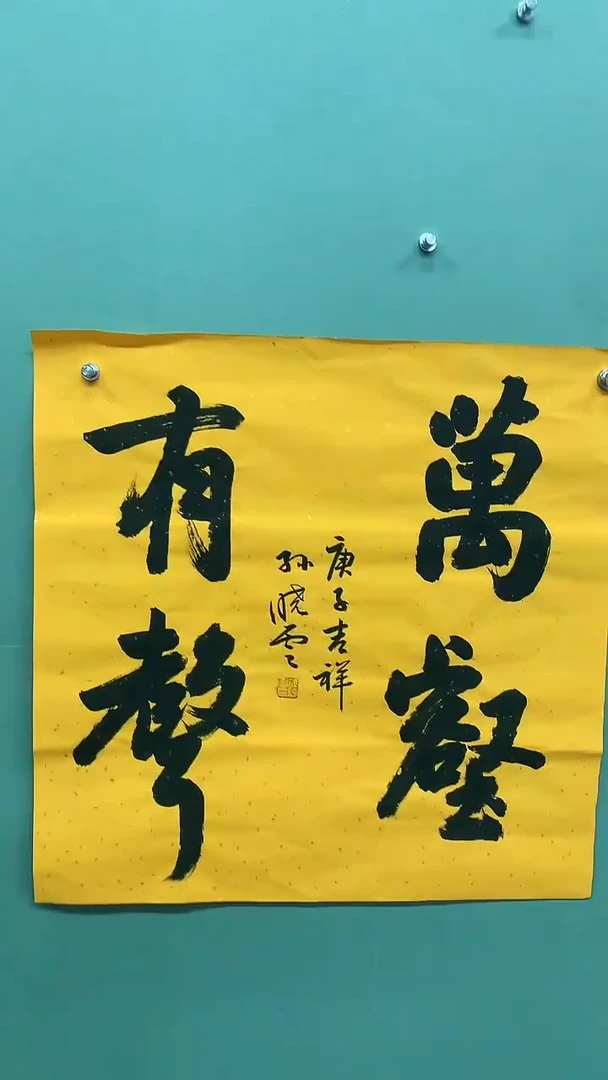 萬壑
有聲
庚子吉祥
孙晓云